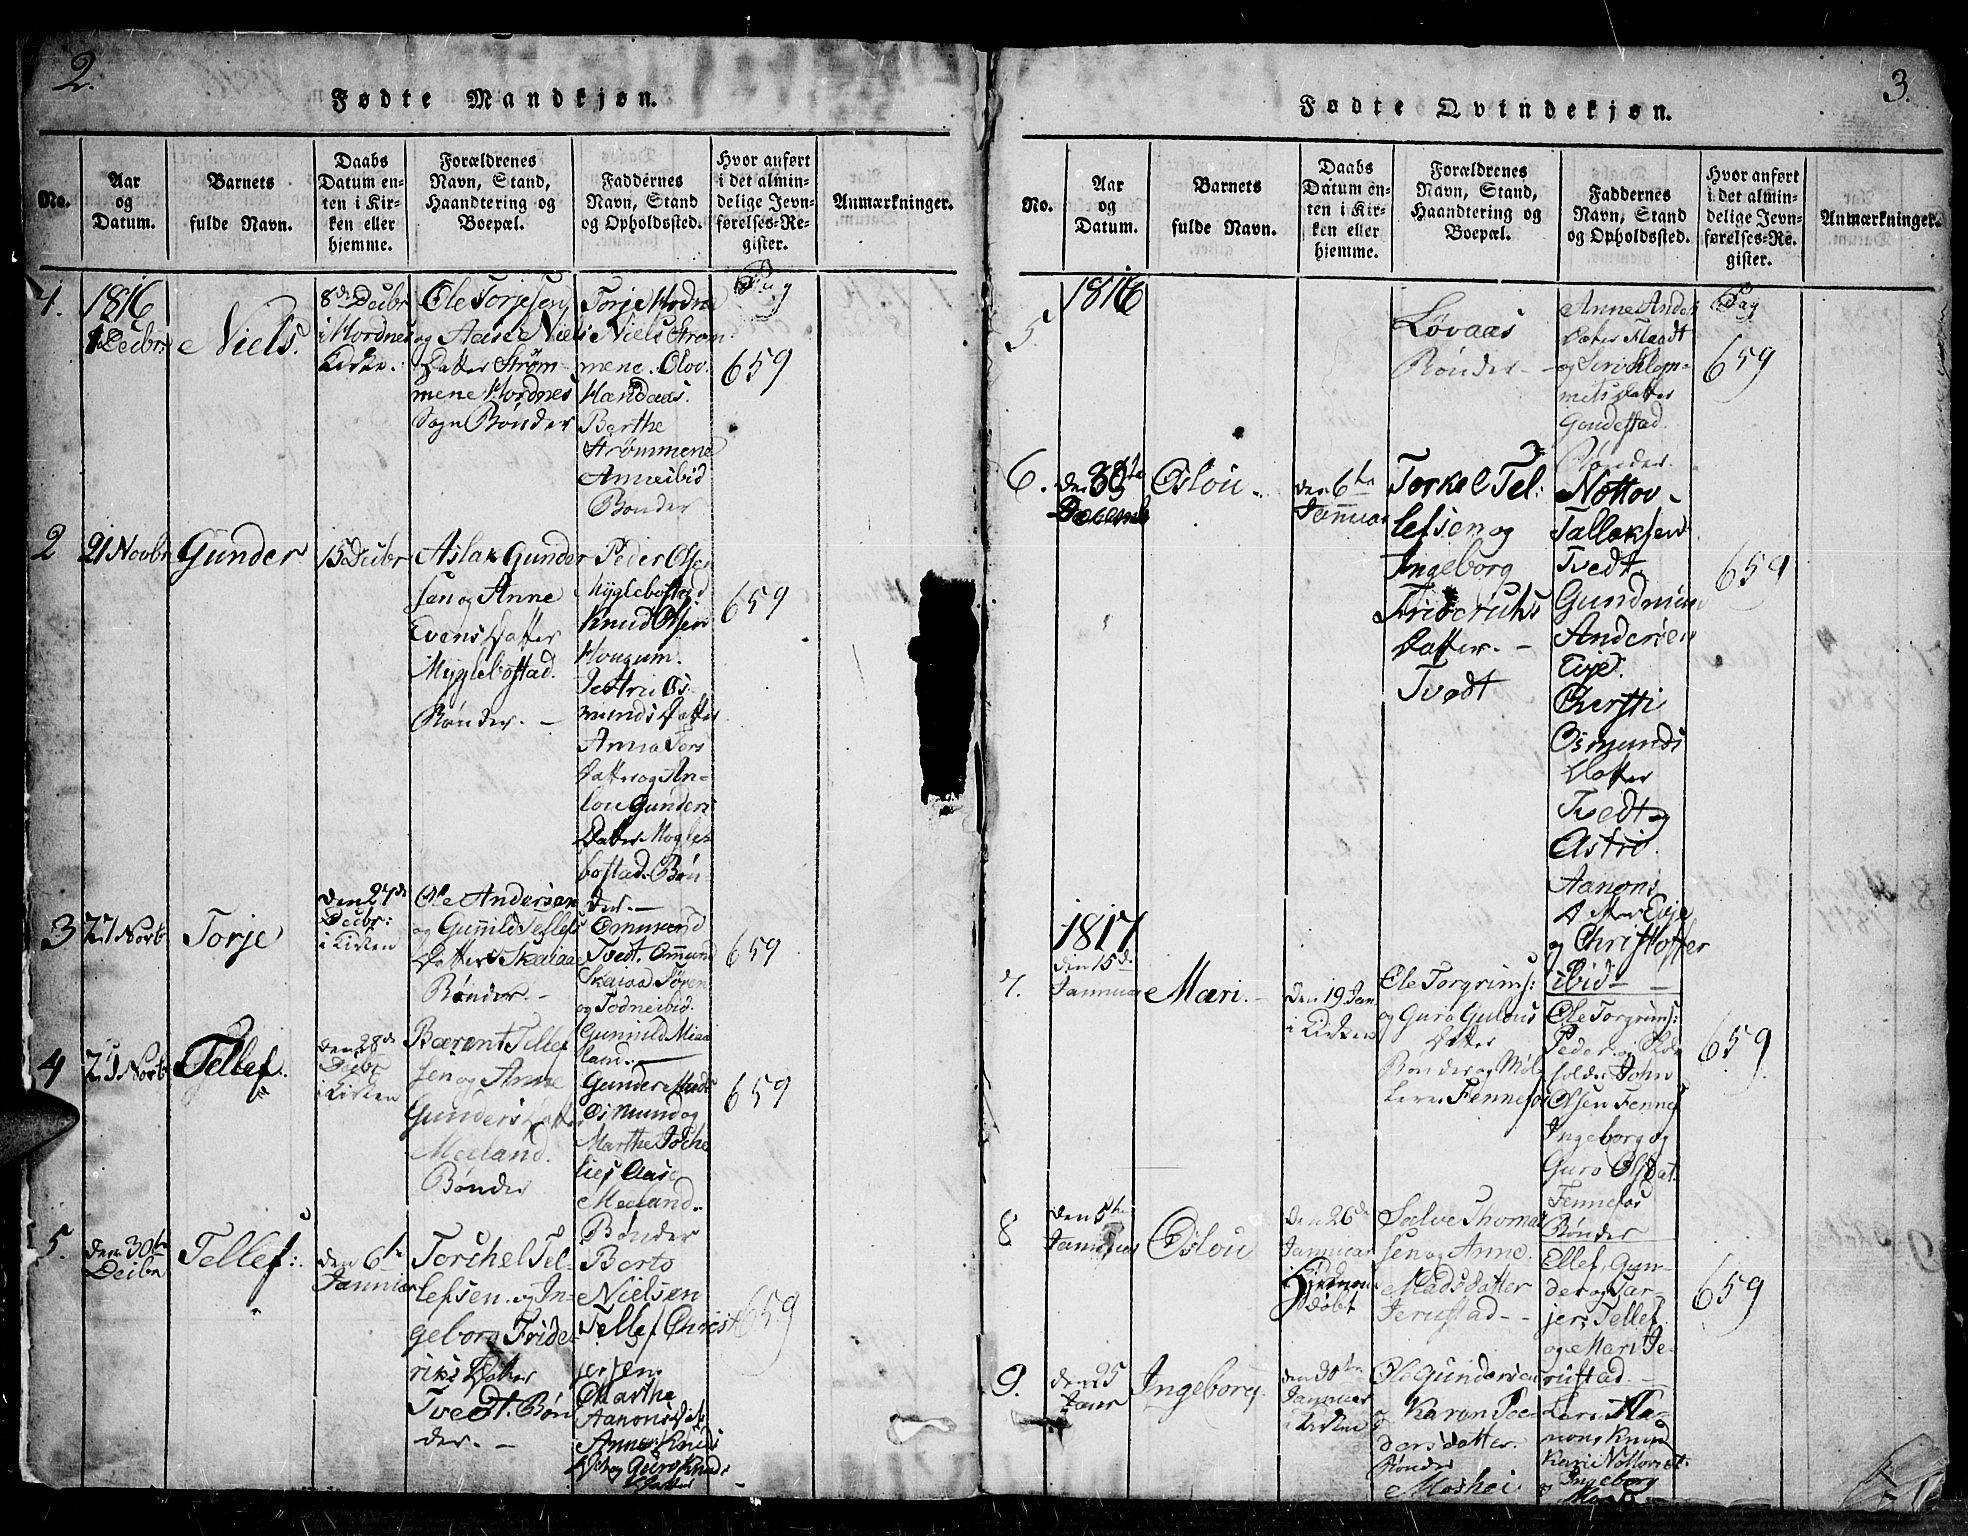 2.
Fødte Mandkjøn.
No.
Aar
og
Datum.
Barnets
fulde Navn.
Daabs
Datum en-
ten i Kir-
ken eller
hjemme.
Forældrenes
Navn, Stand,
Haandtering og
Boepæl.
Faddernes
Navn, Stand
og Opholdssted.
Hvor anført
i det almin-
delige Jevn-
førelses-Re-
gister.
Anmærkninger.
1.
1816
1 Decbr
Niels.
8de Decbr
i Hordnes
Kirke.
Ole Torjesen
og Aase Niels
Datter Strøm-
mene Hordnes
Sogn Bønder
Torje Hodne
Niels Strøm
mene. Olov
Handaas.
Berthe
Strømmene
Anne ibid
Bønder
Pag
659
2
21 Novbr
Gunder
15 Decbr
Aslak Gunder
sen og Anne
Evens Datter
Myglebostad.
Bønder. -
Peder Olsen
Myglebostad
Knud Olsen
Hougum.
Os-
munds Datter
Anna Tors
Datter og An-
lou Gunders
Datter Mogle-
bostad. Bøn
der. -
659
3
27 Novb
Torje
den 27de
Decbr:
i Kirken
Ole Andersen
og Gunnild Tellefs
Datter Skaiaa
Bønder. -
Omund
Tvedt. Omund
Skaiaa Søren
og Todne ibid.
Gunnild Miaa
land. -
659
4
25 Novb
Tellef.
den 28de
Decbr
i Kirken
Bærent Tellef
sen og Anne
Gunders Datter
Meeland.
Bønder
Gunder Mads
Osmund og
Marthe Joche
lies Aase
Meeland.
Bønder
659
5.
den 30te
Decbr
Tellef:
den 6te
Januar
Torchel Tel-
lefsen og In-
geborg Fride-
riks Datter
Tvedt. Bøn
der. -
Berto
Nielsen
Tellef Christ
jersen
Marthe
Aanons Dat
Anne Knuds
D. og Guro Knuds
Datter
659
3.
Fødte Qvindekjøn.
No.
Aar
og
Datum.
Barnets
fulde Navn.
Daabs
Datum en-
ten i Kir-
ken eller
hjemme.
Forældrenes
Navn, Stand,
Haandtering og
Boepæl.
Faddernes
Navn, Stand
og Opholdssted.
Hvor anført
i det almin-
delige Jevn-
førelses-Re-
gister.
Anmærkninger.
5
1816
Løvaas
Bønder -
Anne Anders
Datter Flaadt
og Siri Klem-
mets Datter
Gaudestad.
Bønder.
Pag
659
6.
den 30te
Decembr
Oslou -
den 6te
Januar
Torkel Tel:
lefsen og
Ingeborg
Frideriks
Datter. -
Tvedt
Nottov -
Tallaksen
Tvedt
Gundnium
Andersen
Evje.
Chersti
Osmunds
Datter
Tvedt og
Astri
Aanons
Datter Evje
og Christoffer
ibid -
659
1817
7.
den 15de
Januar
Mari. -
den 19 Jan
i Kirken
Ole Torgrims:
og Guro Gulous
Datter
Bønder og Møl-
lere Fennefos
Ole Torgrims:
Peder og Hol-
folder John
Olsen Fennef
Ingeborg og
Guro Olsdat
Fennefos
Bønder
659
8
den 5te
Januar
Oslou
den 26de
Januar
Hjemme
døbt
Salve Thomas
sen og Anne
Madsdatter
Jerustad - -
Ellef, Gun-
der og Tar-
jer, Tellef
og Mari Je-
rustad. -
659
9.
den 25
Janr
Ingeborg.
den 30te
Januar
i Kirken
Ole Gundersen
og Karen Pe-
dersdatter.
Bønder
Moshei.
Lars Aa-
non og Knud
Karie Nottov
og Ingeborg